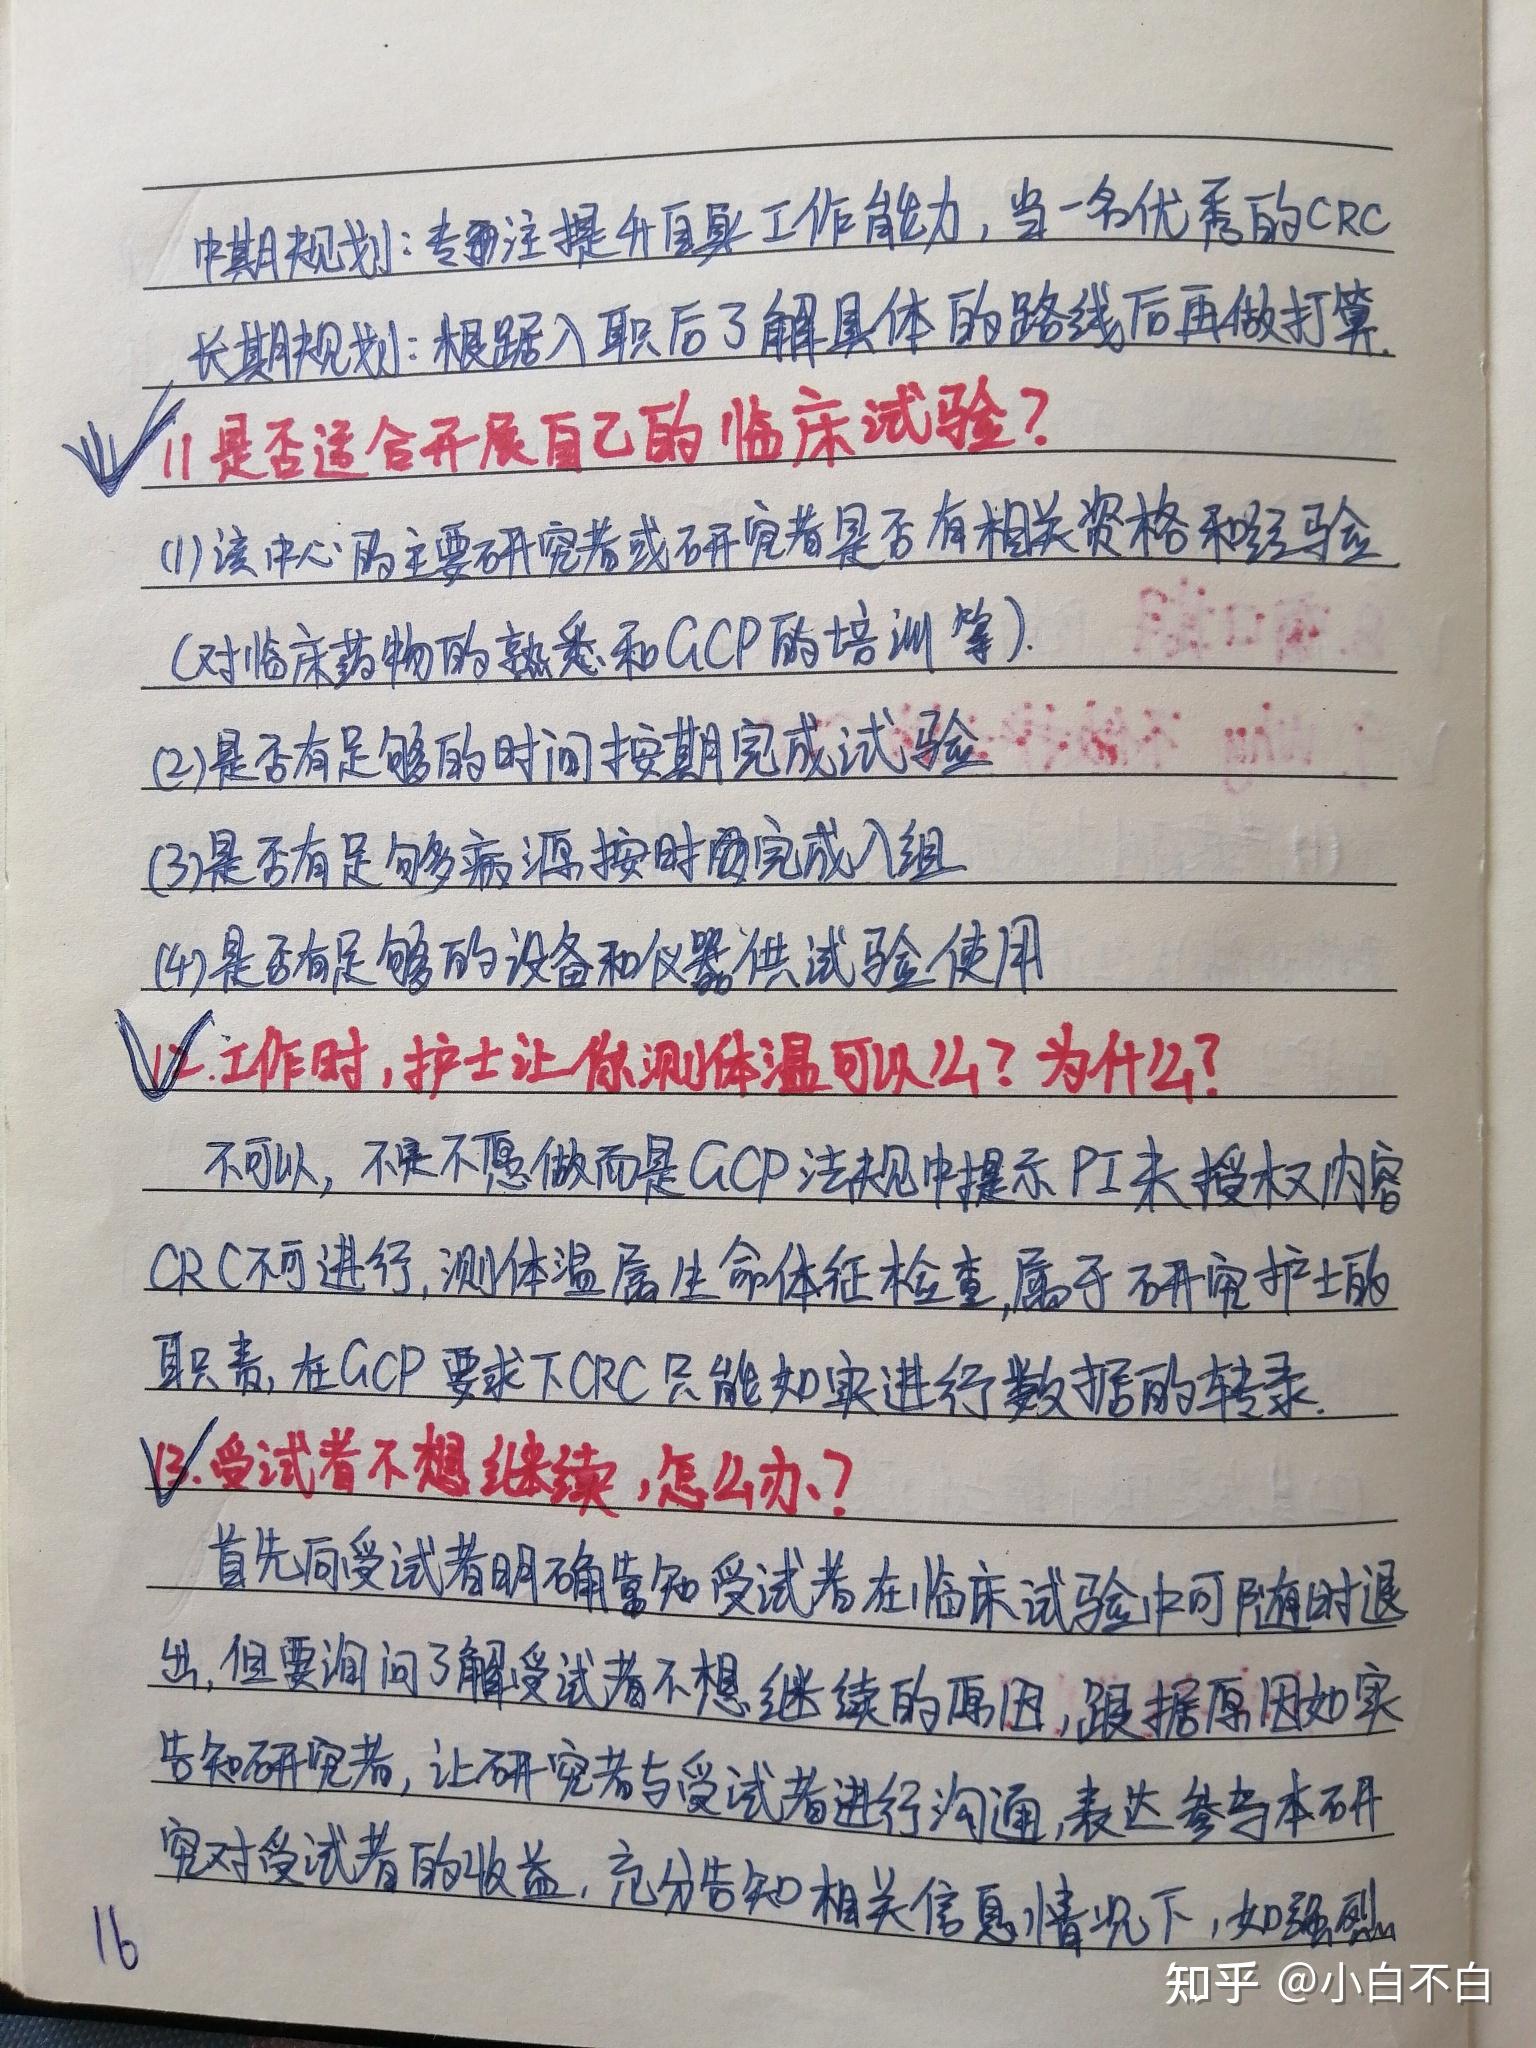 中期规划：专注提升自身工作能力，当一名优秀的CRC
长期规划：根据入职后了解具体的路线后再做打算.
11 是否适合开展自己的临床试验？
(1)该中心的主要研究者或研究者是否有相关资格和经验
(对临床药物的熟悉和GCP的培训等).
(2)是否有足够的时间按期完成试验
(3)是否有足够病源按时完成入组
(4)是否有足够的设备和仪器供试验使用
12.工作时,护士让你测体温可以么？为什么？
不可以，不是不愿做而是GCP法规中提示PI未授权内容
CRC不可进行,测体温属生命体征检查,属于研究护士的
职责,在GCP要求下CRC只能如实进行数据的转录.
13.受试者不想继续,怎么办？
首先向受试者明确告知受试者在临床试验中可随时退
出,但要询问了解受试者不想继续的原因,跟据原因如实
告知研究者,让研究者与受试者进行沟通,表达参与本研
究对受试者的收益,充分告知相关信息情况下,如强烈
16
知乎 @小白不白